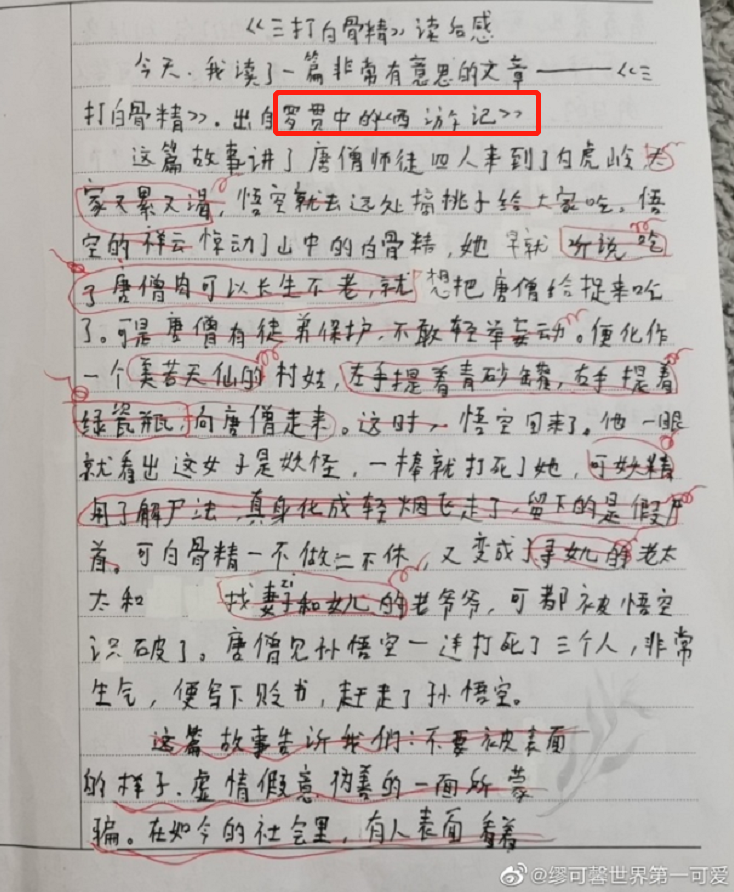 《三打白骨精》读后感
今天,我读了一篇非常有意思的文章——《三
打白骨精》。出自罗贯中的《西游记》
这篇故事讲了唐僧师徒四人来到了白虎岭大
家又累又渴,悟空就去远处摘桃子给大家吃。悟
空的祥云惊动了山中的白骨精,她早就听说吃
了唐僧肉可以长生不老,就想把唐僧给捉来吃
了。可是唐僧有徒弟保护,不敢轻举妄动。便化作
一个美若天仙的村姑,左手提着青砂罐,右手提着
绿瓷瓶,向唐僧走来。这时,悟空回来了。他一眼
就看出这女子是妖怪,一棒就打死了她,可妖精
用了解尸法,真身化成轻烟飞走了,留下的是假尸
首。可白骨精一不做二不休,又变成了寻女儿的老太
太和 找妻子和女儿的老爷爷,可都被悟空
zi
识破了。唐僧见孙悟空一连打死了三个人,非常
生气,便写下贬书,赶走了孙悟空。
这篇故事告诉我们:不要被表面
的样子、虚情假意伪善的一面所蒙
骗。在如今的社会里,有人表面看着
@缪可馨世界第一可爱